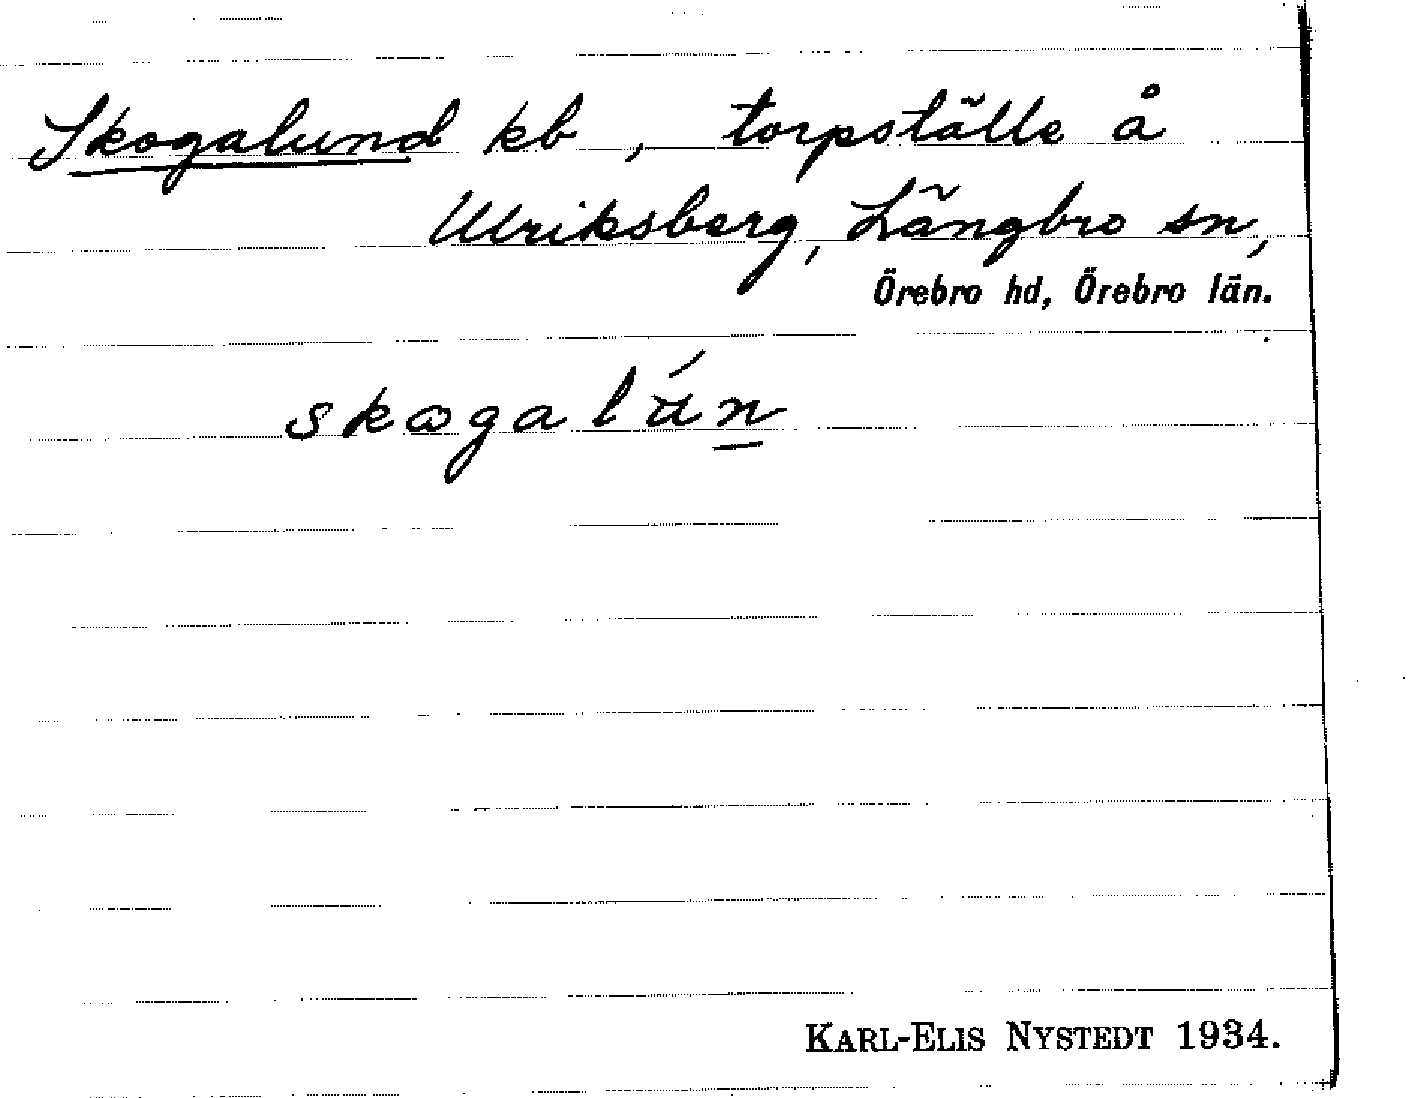 Skogalund kb, torpställe å
Ulriksberg, Längbro sn,
Örebro hd, Örebro län.
skɷgalún̲
KARL-ELIS NYSTEDT 1934.